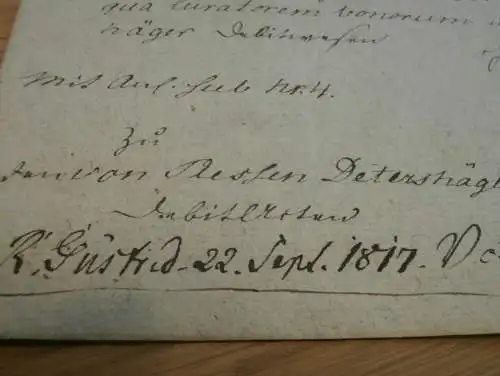 qua Curatorem bonorum
häger Debitwesen
Mit Anl. sub Nr. 4.
Zu
von Plessen Detershäg
Debit Acten
R. Güstrd. 22. Sept. 1817.